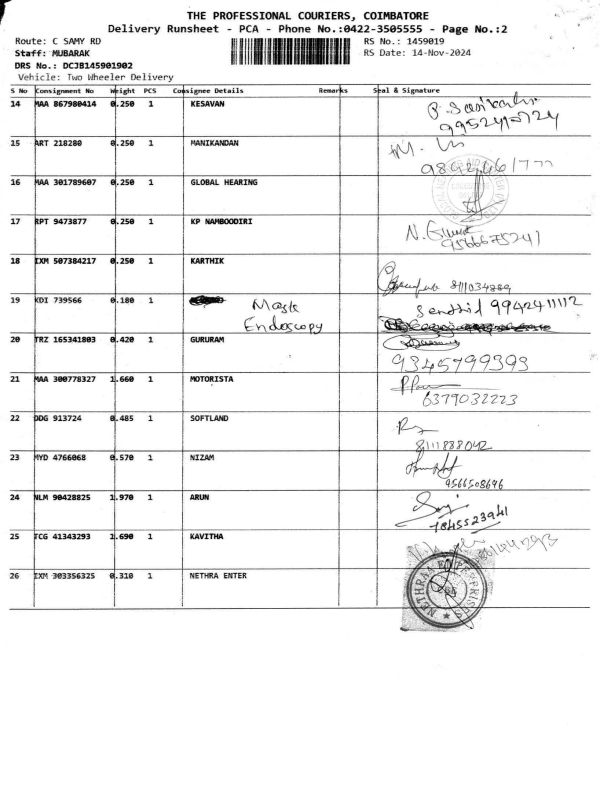 THE PROFESSIONAL COURIERS, COIMBATORE
Delivery Runsheet - PCA - Phone No.:0422-3505555 - Page No.:2
Route: C SAMY RD RS No.: 1459019
Staff: MUBARAK RS Date: 14-Nov-2024
DRS No.: DCJB145901902
Vehicle: Two Wheeler Delivery
S No Consignment No Weight PCS Consignee Details Remarks Seal & Signature
14 MAA 867980414 0.250 1 KESAVAN
9952410724
15 ART 218280 0.250 1 MANIKANDAN
16 MAA 301789607 0.250 1 GLOBAL HEARING
17 RPT 9473877 0.250 1 KP NAMBOODIRI
9566675241
18 IXM 507384217 0.250 1 KARTHIK
8111034889
19 KDI 739566 0.180 1 Mask Senthil 9942411112
Endoscopy
20 TRZ 165341803 0.420 1 GURURAM
9345799393
21 MAA 300778327 1.660 1 MOTORISTA
6379032223
22 DDG 913724 0.485 1 SOFTLAND
8111888042
23 MYD 4766068 0.570 1 NIZAM
9566508696
24 NLM 90428825 1.970 1 ARUN
7845523941
25 TCG 41343293 1.690 1 KAVITHA
26 IXM 303356325 0.310 1 NETHRA ENTER
NETHRAA ENTERPRISES